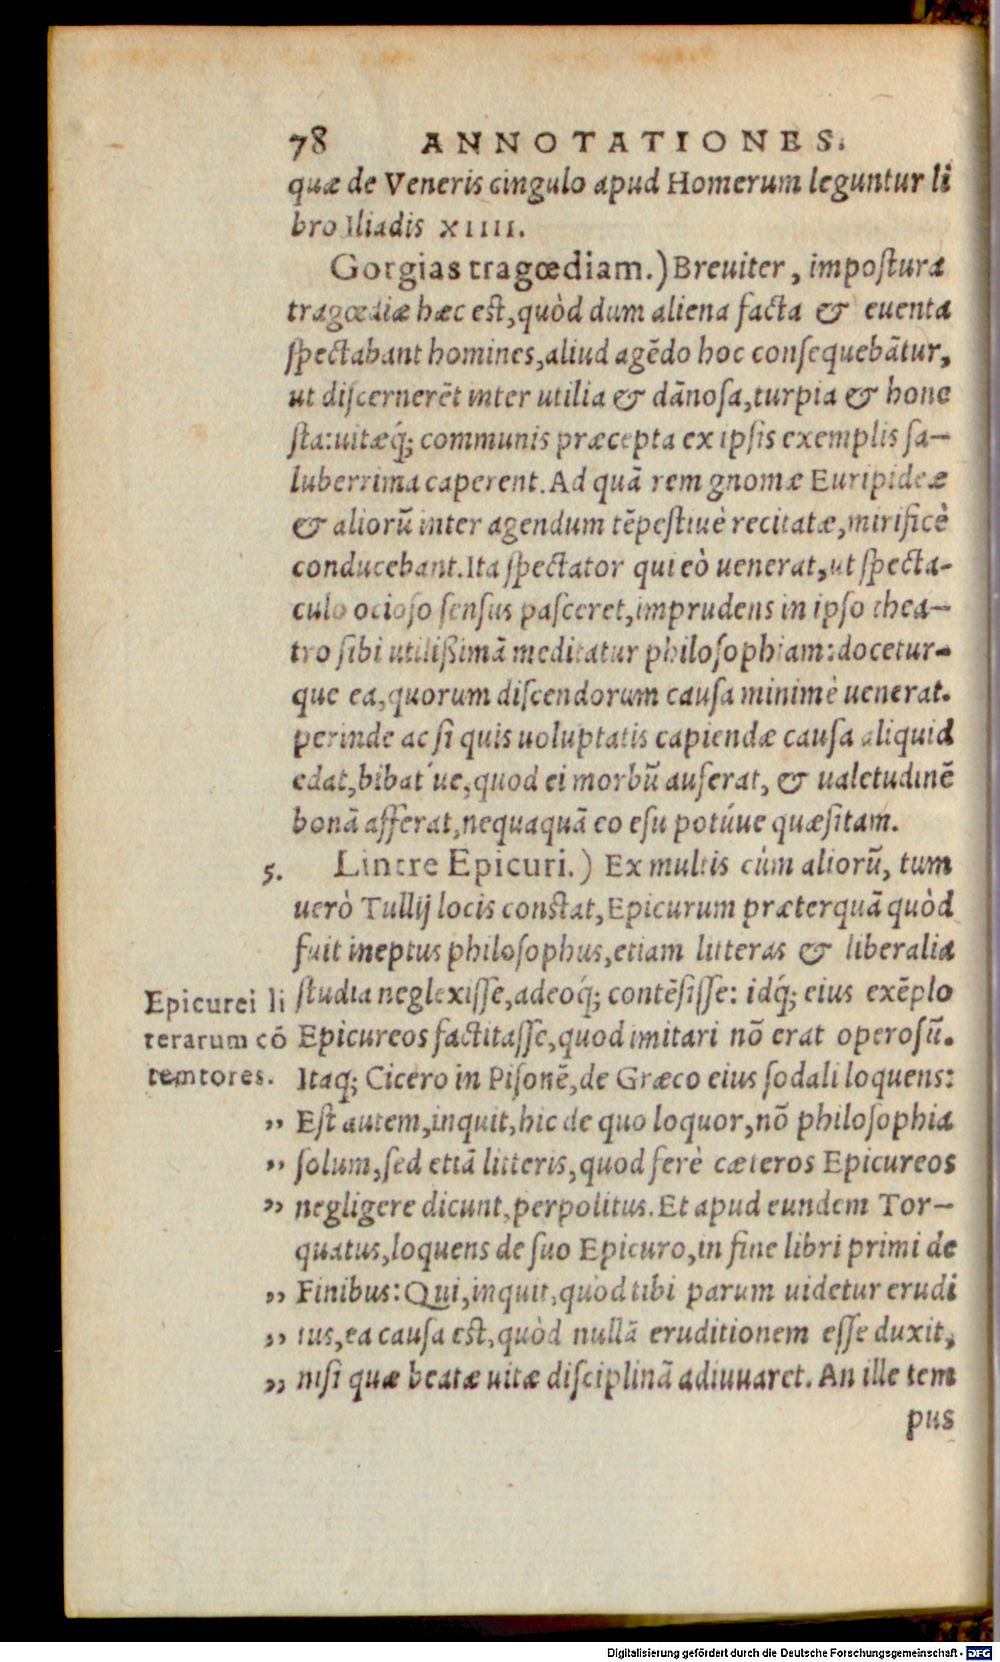 78 ANNOTATIONES.
quæ de Veneris cingulo apud Homerum leguntur li
bro Iliadis XIIII.
Gorgias tragœdiam.) Breuiter, impostura
tragœdiæ hæc est, quòd dum aliena facta & euenta
spectabant homines, aliud agẽdo hoc consequebãtur,
ut discernerẽt inter utilia & dãnosa, turpia & hone
sta: uitæq́; communis præcepta ex ipsis exemplis sa-
luberrima caperent. Ad quã rem gnomæ Euripideæ
& aliorũ inter agendum tẽpestiuè recitatæ, mirificè
conducebant. Ita spectator qui eò uenerat, ut specta-
culo ocioso sensus pasceret, imprudens in ipso thea-
tro sibi utilißimã meditatur philosophiam: docetur-
que ea, quorum discendorum causa minimè uenerat.
perinde ac si quis uoluptatis capiendæ causa aliquid
edat, bibat´ue, quod ei morbũ auferat, & ualetudinẽ
bonã afferat, nequaquã eo esu potúue quæsitam.
5. Lintre Epicuri.) Ex multis cùm aliorũ, tum
uerò Tullij locis constat, Epicurum præterquã quòd
fuit ineptus philosophus, etiam litteras & liberalia
studia neglexisse, adeoq́; contẽsisse: idq́; eius exẽplo
Epicureos factitasse, quod imitari nõ erat operosũ.
Epicurei li
terarum cõ
temtores.
Itaq; Cicero in Pisonẽ, de Græco eius sodali loquens:
„ Est autem, inquit, hic de quo loquor, nõ philosophia
„ solum, sed etiã litteris, quod ferè cæteros Epicureos
„ negligere dicunt, perpolitus. Et apud eundem Tor-
quatus, loquens de suo Epicuro, in fine libri primi de
„ Finibus: Qui, inquit, quòd tibi parum uidetur erudi
„ tus, ea causa est, quòd nullã eruditionem esse duxit,
„ nisi quæ beatæ uitæ disciplinã adiuuaret. An ille tem
pus
Digitalisierung gefördert durch die Deutsche Forschungsgemeinschaft - DFG